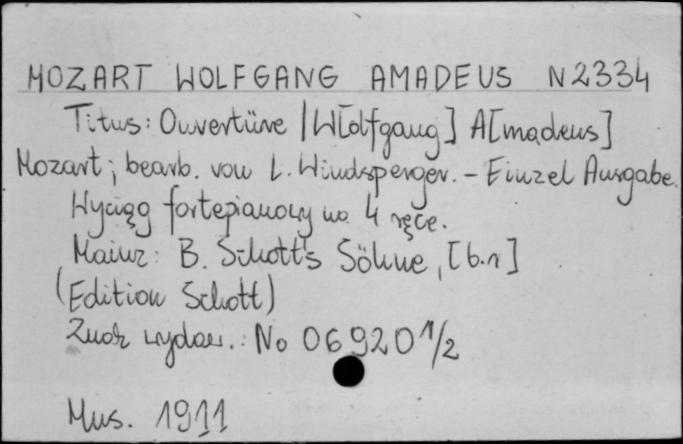 MOZART WOLFGANG AMADEUS N2334
Titus: Ouvertüre / W[olfgang] A[madeus]
Mozart; bearb. von L. Windsperger. - Einzel Ausgabe.
Wyciąg fortepianowy na 4 ręce.
Mainz: B. Schott's Söhne, [b.r]
(Edition Schott)
Znak wydaw.: No 06920 1/2
Mus. 1911